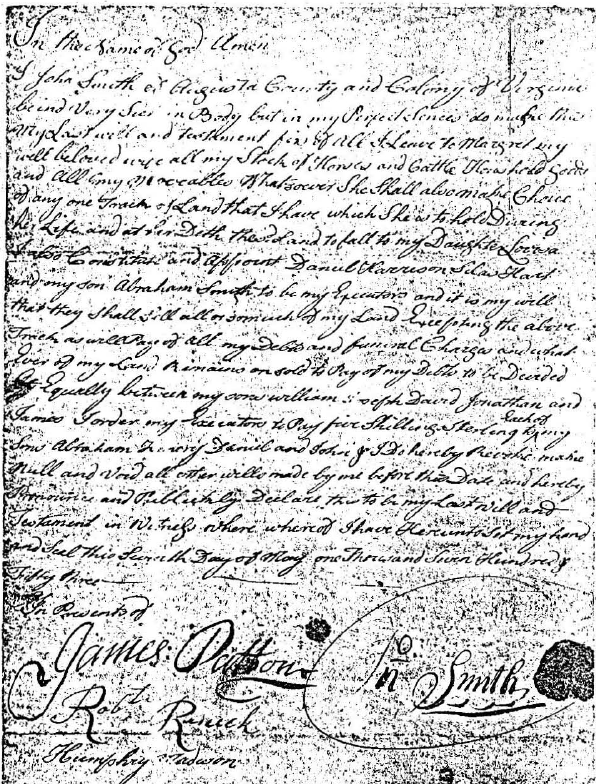 In the Name of God Amen
I John Smith of Augusta County and Colony of Virginia
being Very Seek in Body but in my Perfect Sences do make this
My Last will and testament first of All I Leave to Margret my
well beloved wife all my Stock of Horses and Cattle Household Goods
and All my Moveables Whatsower She Shall also make Choice
of any one Tract of Land that I have which She is to hold During
her Life and at her Deth the sd Land to fall to my Daughter Lovesa
I also Constitute and Appoint Daniel Harrison Silas Hart
and my son Abraham Smith to be my Executors and it is my will
that they Shall Sill all or somuch of my Land Excepting the above
Tract as will Pay of All my Debts and funeral Charges and what
Ever of my Land Remains on sold to Pay of my Debts to be Devided
Equally between my sons william Joseph David Jonathan and
James I order my Executors to Pay five Shillings Sterling to Each of my
Sons Abraham Henery Daniel and John & I Do hereby Revoke make
Null and Void all other wills made by me before this Date and hereby
Pronounce and Publickly Declare this to be my Last will and
Testament in Witness where whereof I have Hereunto Set my hand
and Seel this Day of May one Thousand Seven Hundred &
Fifty three
In Presents of
James Patton
Jno Smith
Robt Renick
Humphry